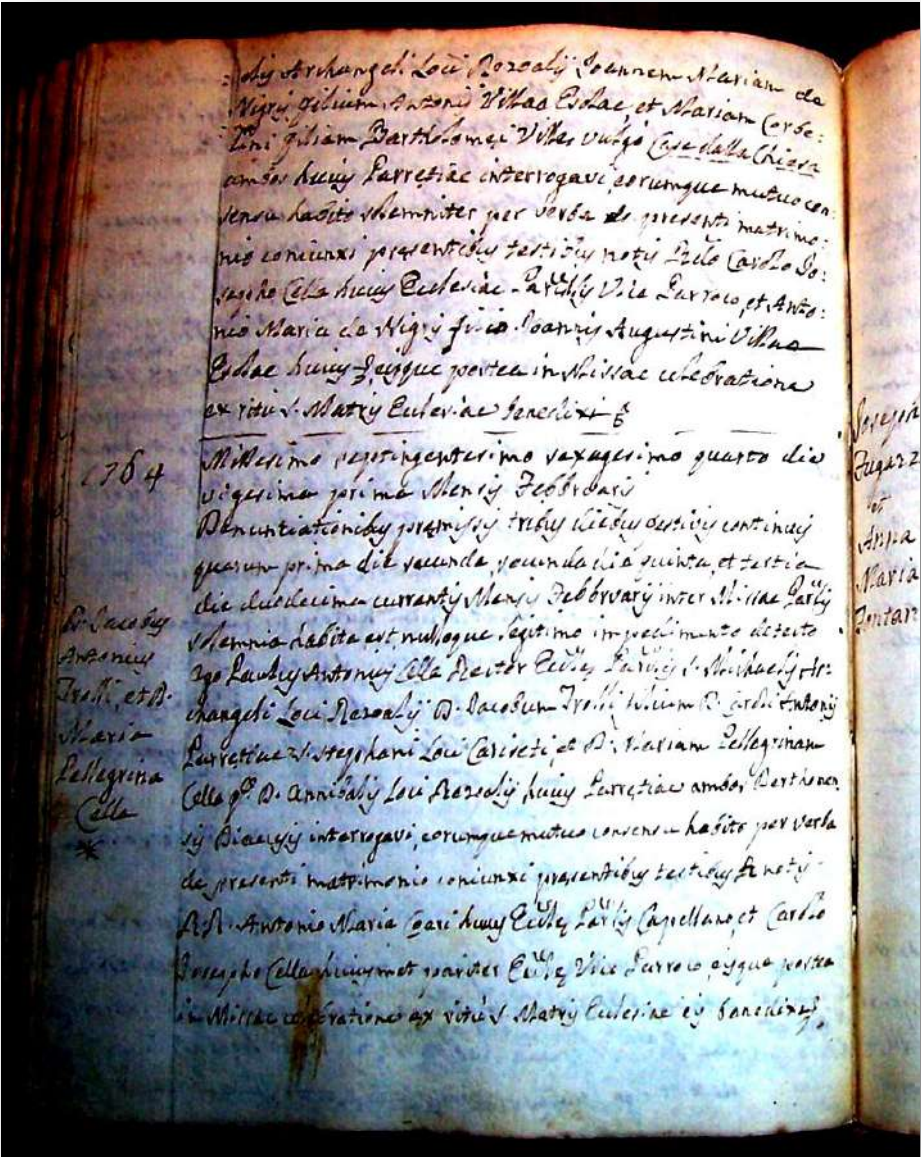 olis Archangeli Loci Rozoalij Joannem Mariam de
Nigris filium Antonij Villae Esolae, et Mariam Corbe:
lini filiam Bartholomei Villae vulgo Casa dalla Chiesa
ambos huius Parretiae interrogavi, eorumque mutuo con:
sensu habito solemniter per verba de presenti matrimo:
nio coniunxi presentibus testibus notis Carolo Jo:
sepho Cella huius Ecclesiae Parlis Vice Parroco, et Anto:
nio Maria de Nigris filio Joannis Augustini Villae
Esolae huius eisque postea in Missae celebratione
ex ritu S. Matris Ecclesiae benedixi
1764
Millesimo septingentesimo sexagesimo quarto die
vigesima prima Mensis Febbruarij
Denuntiationibus premissis tribus diebus festivis continuis
quarum prima die secunda, secunda die quinta, et tertia
die duodecima currentis Mensis Febbruarij inter Missae Parlis
solemnia habita est, nulloque legitimo impedimento detecto
ego Paulus Antonius Cella Rector Ecclae Parlis S. Michaelis Ar:
changeli Loci Rozoalij D. Jacobum Trolli filium D. Antonij
Parretiae S. Stephani Loci Cariseti, et D. Mariam Pellegrinam
Cella qm D. Annibalis Loci Rozoalij huius Parretiae ambos Derthonen
sis Diaecesis interrogavi, eorumque mutuo consensu habito per verba
de presenti matrimonio coniunxi presentibus testibus notis
RR. Antonio Maria huius Ecclae Parlis Capellano, et Carolo
Josepho Cella huiusmet pariter Ecclae Vice Parroco, eisque postea
in Missae celebratione ex ritu S. Matris Ecclesiae benedixi
D. Jacobus
Antonius
Trolli, et D.
Maria
Pellegrina
Cella
Joseph
Fugazz
et
Anna
Maria
Fontan